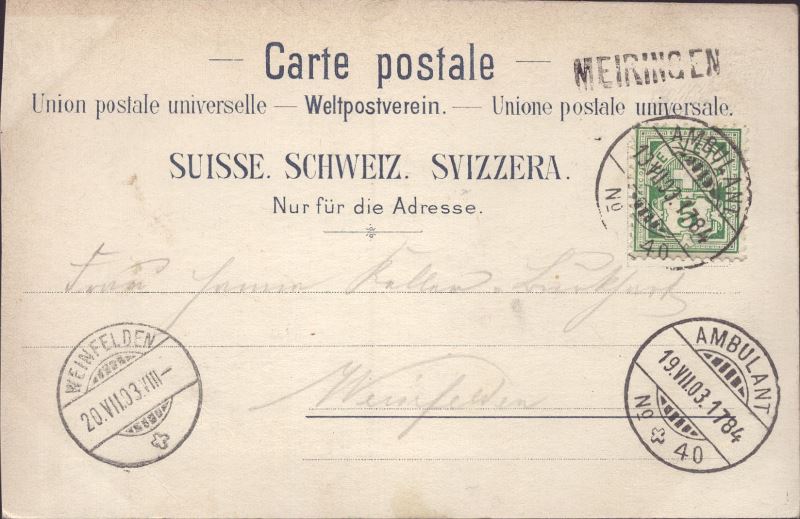 Carte postale
MEIRINGEN
Union postale universelle — Weltpostverein. — Unione postale universale.
SUISSE. SCHWEIZ. SVIZZERA.
Nur für die Adresse.
AMBULANT
19.VII.03.1784
No 40
Frau Keller-Burkhart
Weinfelden
WEINFELDEN
20.VII.03.VIII—
AMBULANT
19.VII.03.1784
No 40